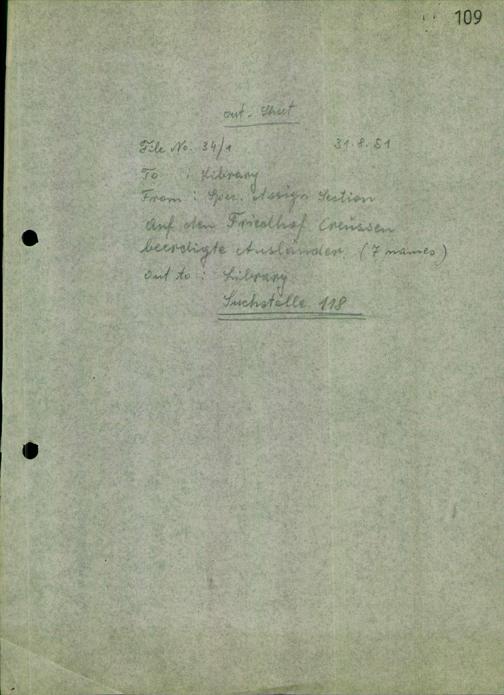 109
out-Sheet
File No. 34/1 31.8.51
To : Library
From : Spec. Assign Section
Auf dem Friedhof Creüssen
beerdigte Ausländer. (7 names)
out to : Library
Suchstelle 118